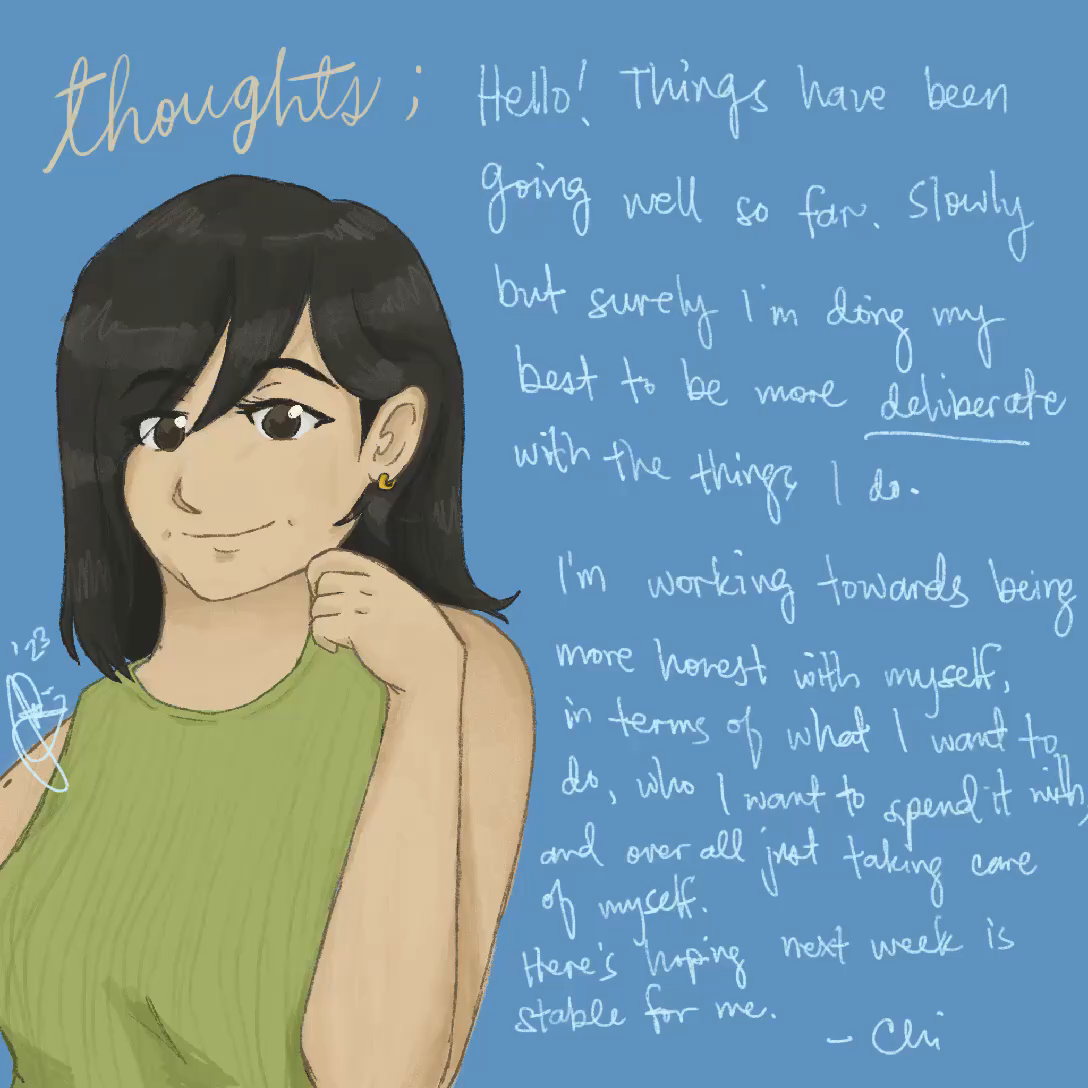 thoughts ;
Hello! Things have been
going well so far. Slowly
but surely I'm doing my
best to be more deliberate
with the things I do.
I'm working towards being
more honest with myself,
in terms of what I want to
do, who I want to spend it with,
and over all just taking care
of myself.
Here's hoping next week is
stable for me.
- Chi
'23